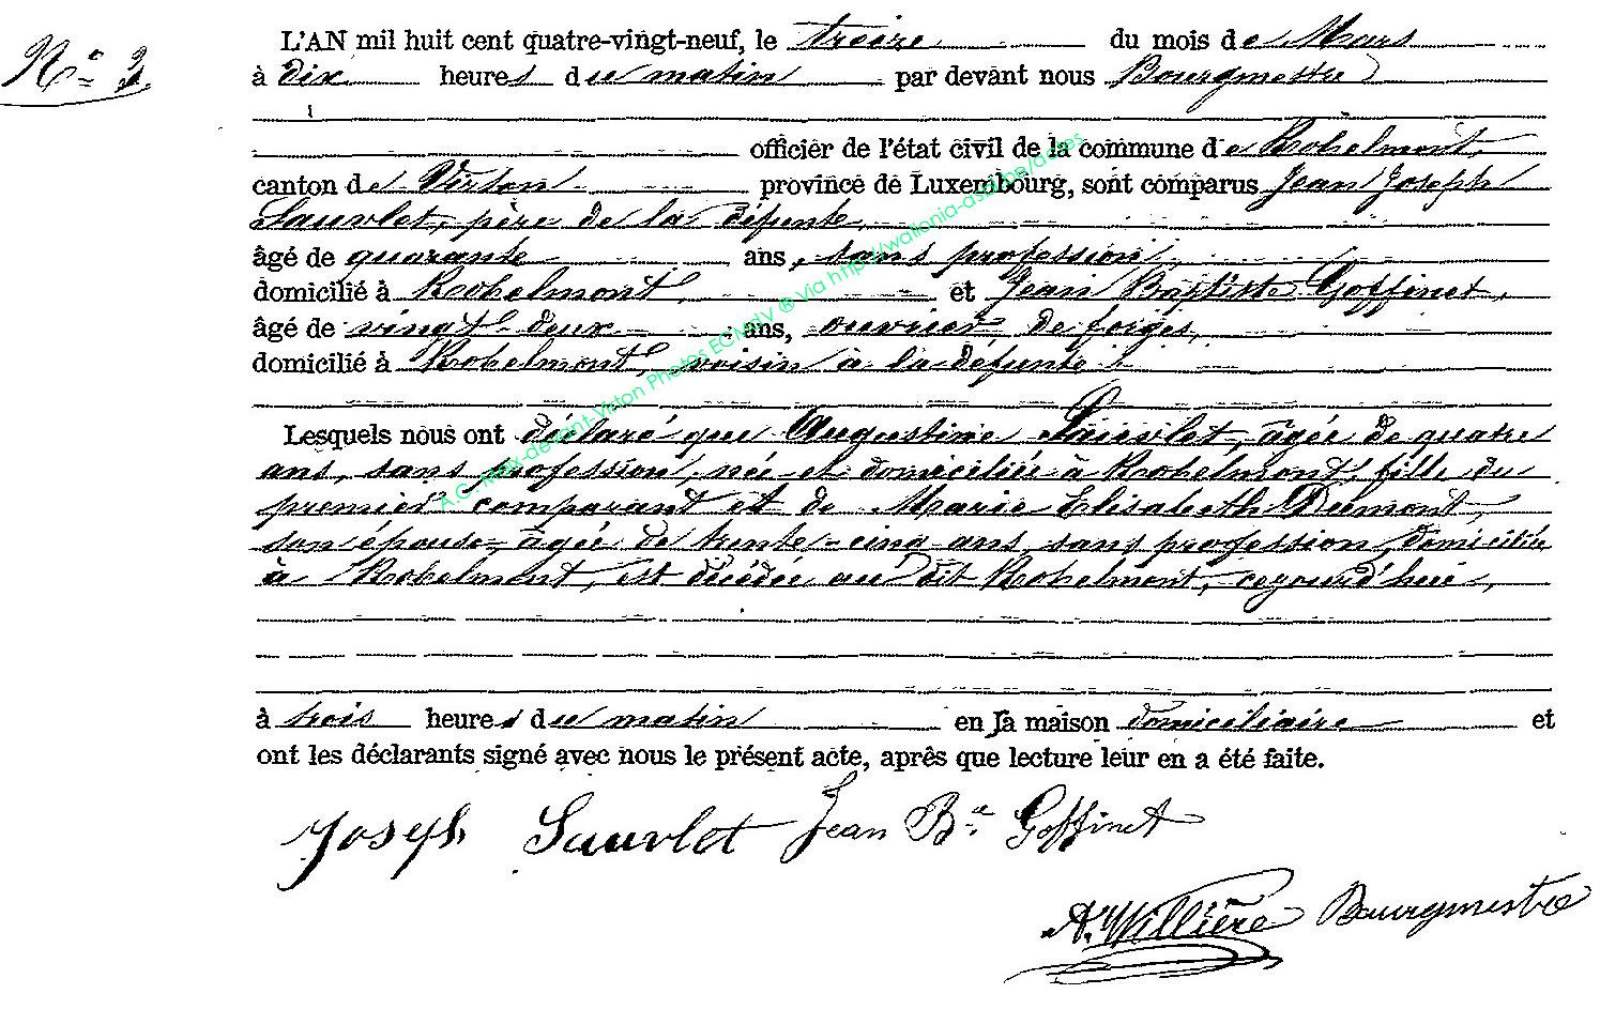 N° 3.
L'AN mil huit cent quatre-vingt-neuf, le treize du mois de Mars
à dix heures du matin par devant nous Bourgmestre
officier de l'état civil de la commune de Robelmont,
canton de Virton province de Luxembourg, sont comparus Jean Joseph
Sauvlet, père de la défunte,
âgé de quarante ans, sans profession,
domicilié à Robelmont, et Jean Baptiste Goffinet,
âgé de vingt-deux ans, ouvrier de forges,
domicilié à Robelmont, voisin à la défunte
Lesquels nous ont déclaré que Augustine Sauvlet, âgée de quatre
ans, sans profession, née et domiciliée à Robelmont, fille du
premier comparant et de Marie Elisabeth Dumont,
son épouse, âgée de trente-cinq ans, sans profession, domiciliée
à Robelmont, est décédée au dit Robelmont, cejourd'hui,
à trois heures du matin en la maison domiciliaire et
ont les déclarants signé avec nous le présent acte, après que lecture leur en a été faite.
Joseph Sauvlet Jean Bte Goffinet
A. Willière Bourgmestre
A.G. Meix-devant-Virton Photos EGMdV ® Via http://wallonia-asbl.be/actes